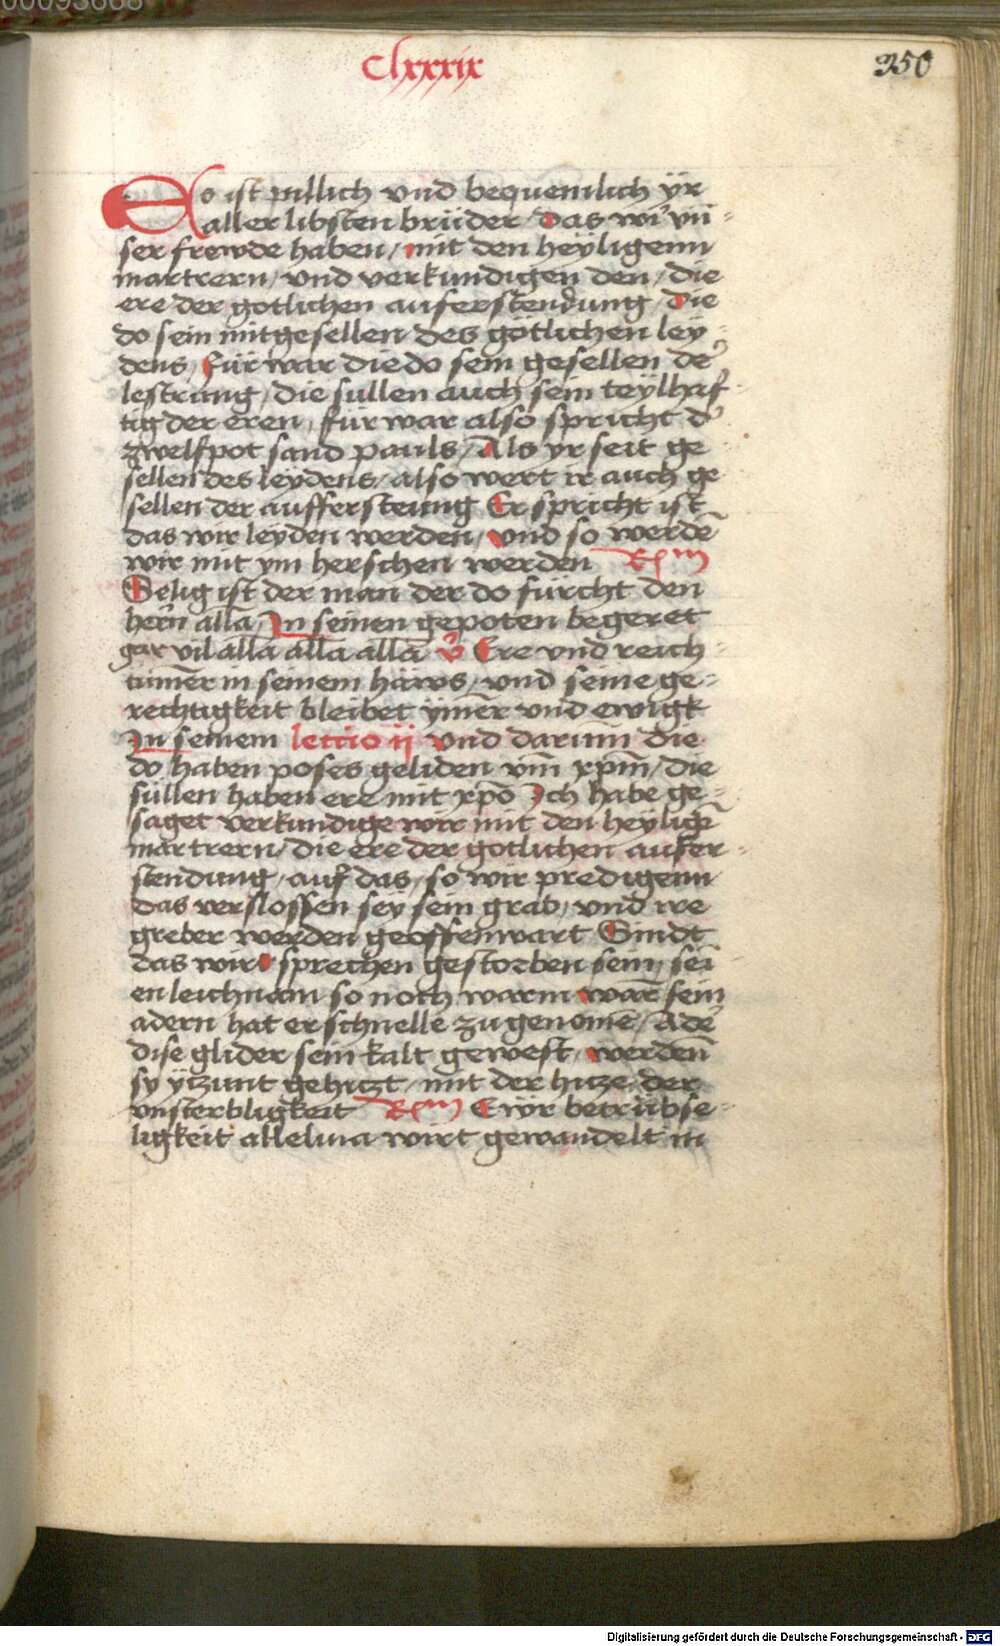 00093668
Clxxxix
350
Es ist pillich vnd bequemlich yr
aller libsten brüder das wi' vn¬
ser frewde haben / mit den heyligenn
martrern / vnd verkundigen den / die
ere der gotlichen auferstendung / Die
do sein mitgesellen des götlichen ley¬
dens / für war die do sein gesellen de'
lestrung / die sullen auch sein teylhaf¬
tig der eren / für war also spricht d'
zwelfpot sand pauls / Als yr seit ge
sellen des leydens / also wert ir auch ge
sellen der auffersteung Er spricht ist
das wir leyden werden / vnd so werdē
wir mit ym herschen werden Rm
Selig ist der man der do fürcht den
hern alla In seinen gepoten begeret
gar vil alla alla alla V Ere vnd reich¬
tumer in seinem haws / vnd seine ge¬
rechtigkeit bleibet ymer vnd ewigk
In seinem lectio ij vnd darum die
do haben poses geliden vm xpm / die
süllen haben ere mit xpo Ich habe ge¬
saget verkundige wir mit den heyligē
martrern / die ere der gotlichen aufer¬
stendung / auf das / so wir predigenn
das verslossen sey sein grab / vnd ire
greber werden geoffenwart Sindt
das wir sprechen gestorben sein sei
en leichnam so noch warm war sein
adern hat er schnelle zu genome / Ade'
dise glider sein kalt gewest / werdenn
sy yczunt gehiczt / mit der hicze der
vnsterbligkeit Rm Ewr betrübse¬
ligkeit alleluia wirt gewandelt in
Digitalisierung gefördert durch die Deutsche Forschungsgemeinschaft - DFG